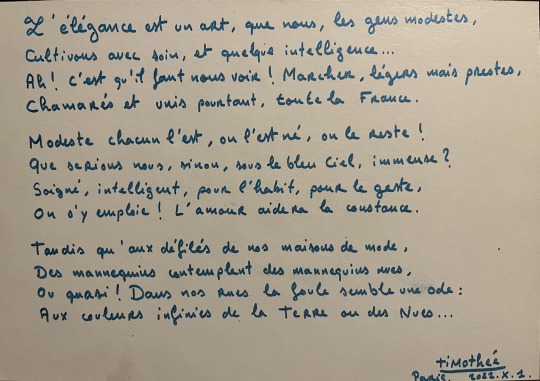 L'élégance est un art, que nous, les gens modestes,
Cultivons avec soin, et quelque intelligence...
Ah! C'est qu'il faut nous voir! Marcher, légers mais prestes,
Chamarés et unis pourtant, toute la France.
Modeste chacun l'est, ou l'est né, ou le reste!
Que serions nous, sinon, sous le bleu Ciel, immense?
Soigné, intelligent, pour l'habit, pour le geste,
On s'y emploie! L'amour aidera la constance.
Tandis qu'aux défilés de nos maisons de mode,
Des mannequins contemplent des mannequins nues,
Ou quasi! Dans nos rues la foule semble une ode:
Aux couleurs infinies de la Terre ou des Nues...
Timothée
Paris. 2022.X.1.